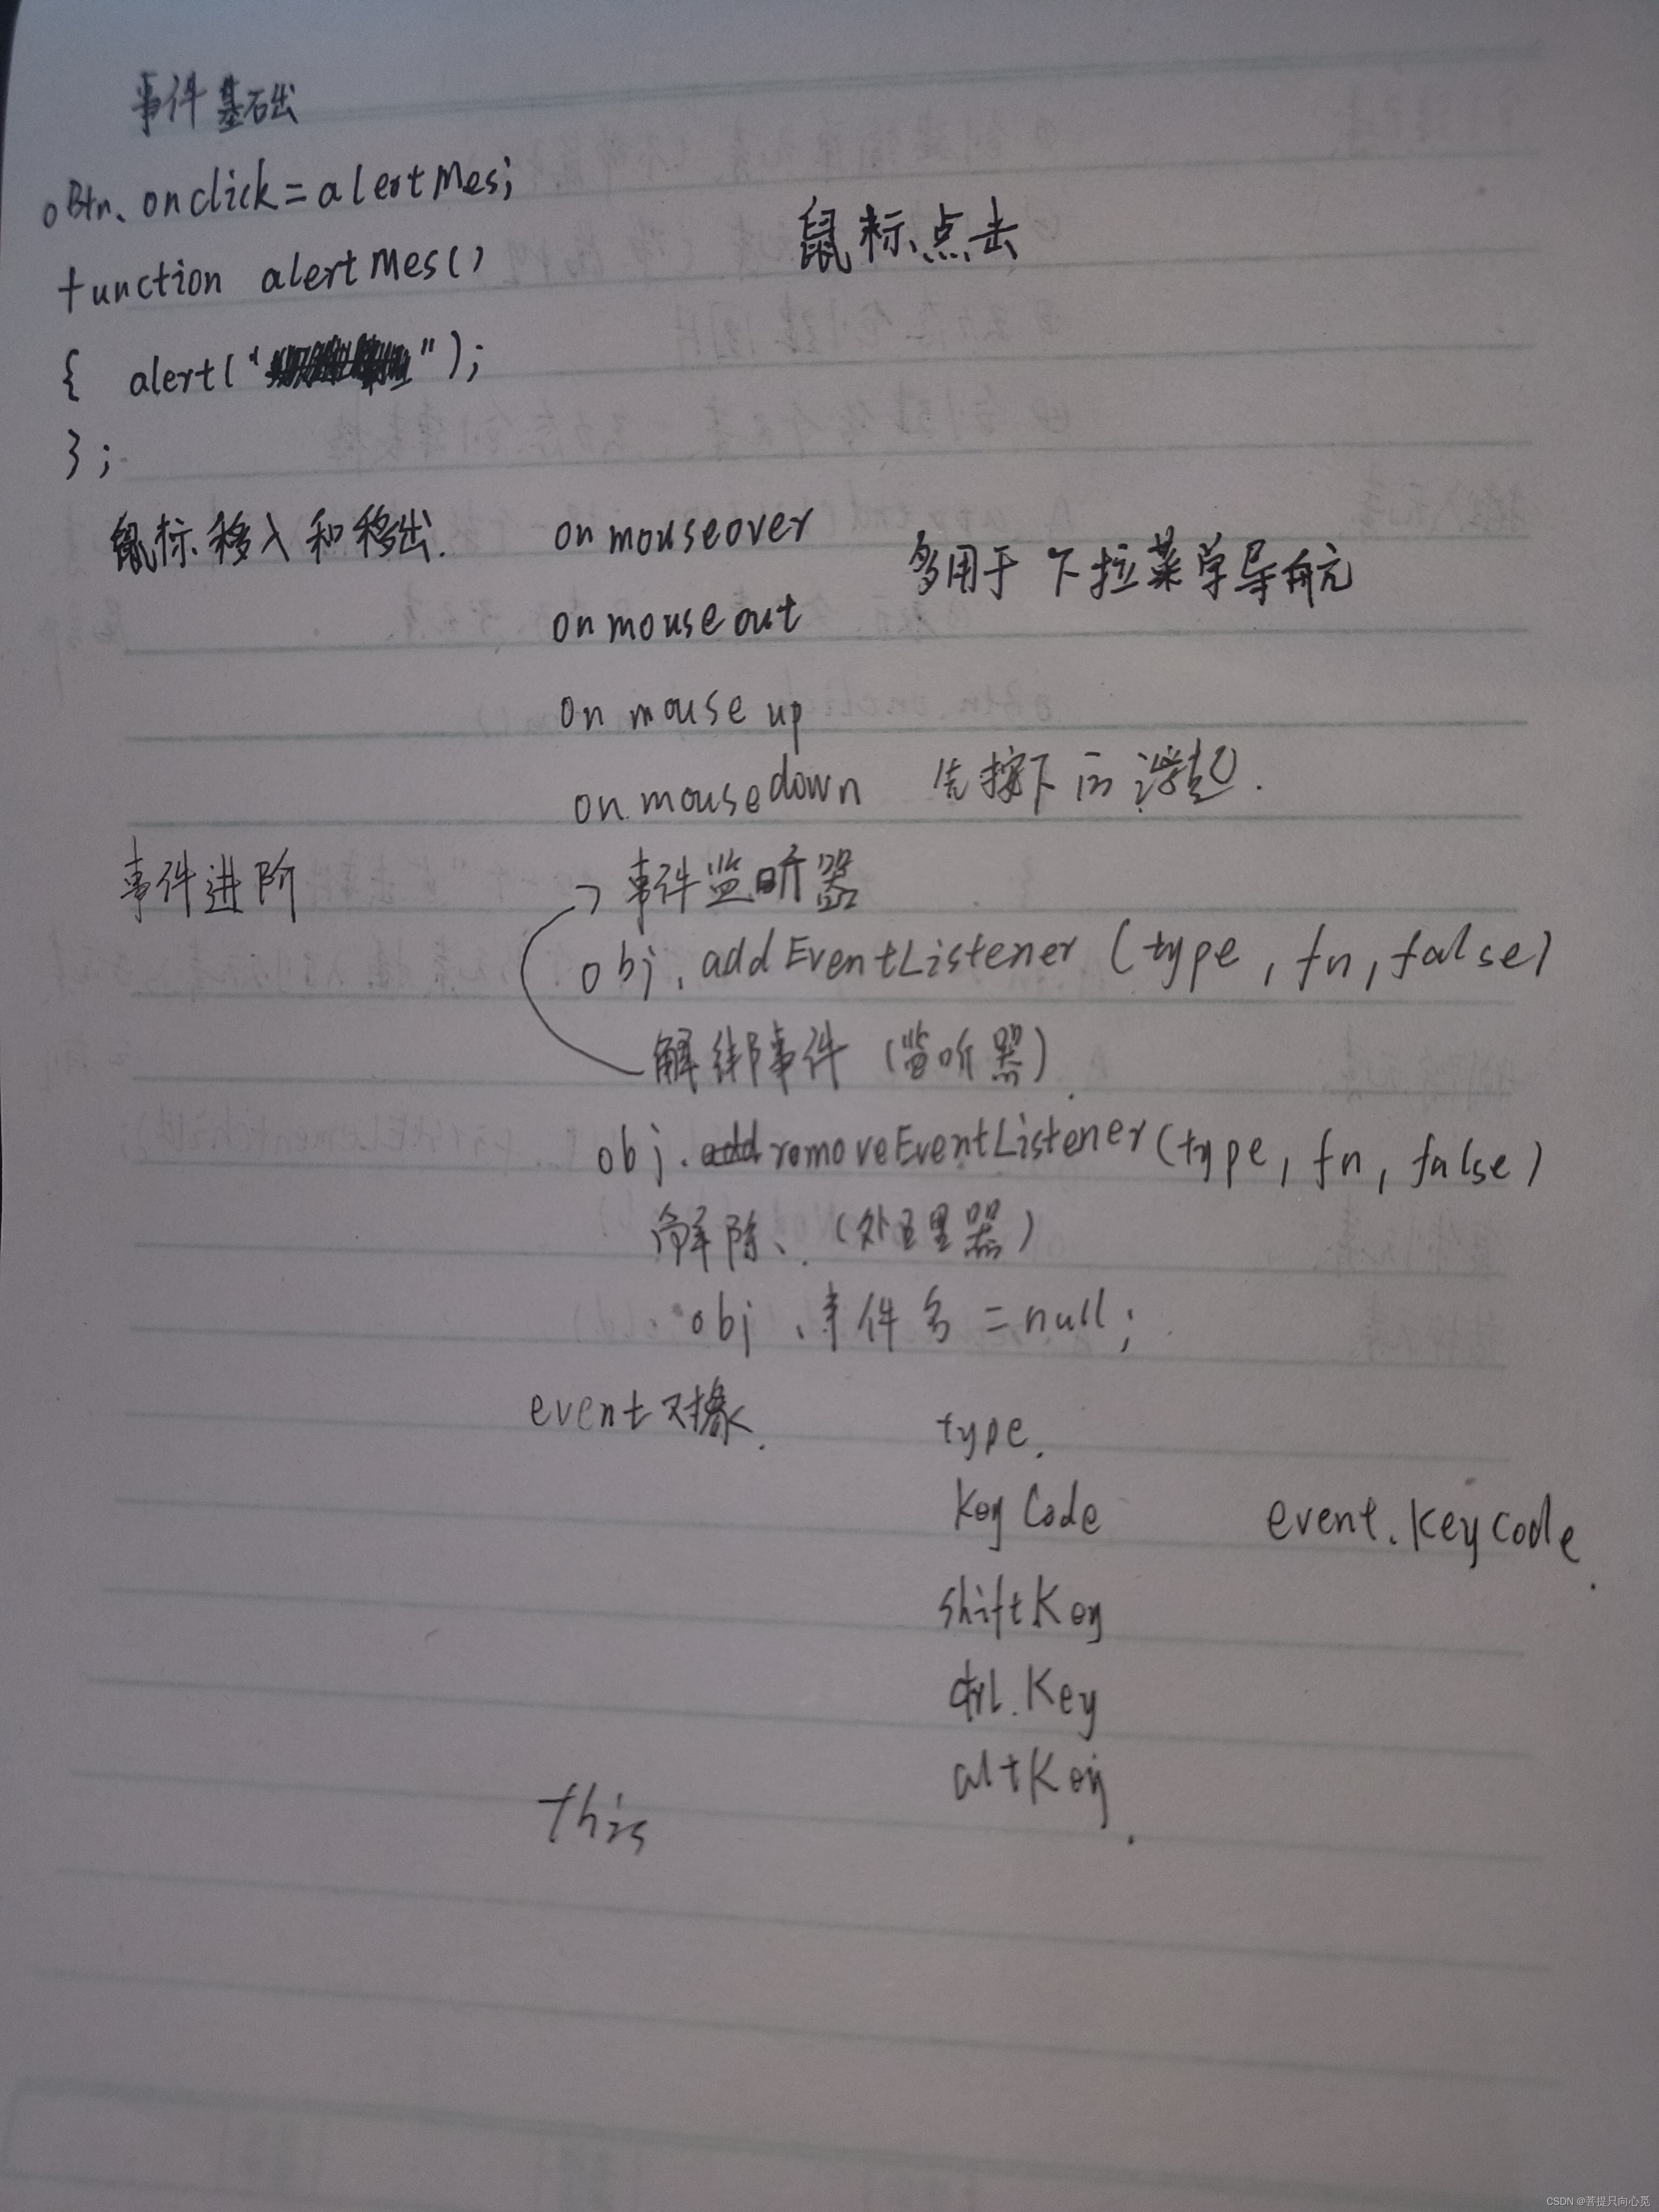 事件基础
oBtn.onclick=alertMes;
function alertMes()
鼠标点击
{ alert(" ");
};
鼠标移入和移出.
onmouseover
多用于下拉菜单导航
onmouseout
onmouseup
onmousedown 先按下而 起.
事件进阶
→事件监听器
obj.addEventListener(type,fn,false)
解绑事件(监听器)
obj.romoveEventListener(type,fn,false)
解除、(处理器)
obj.事件名=null;
event对象.
type.
KeyCode
event.keycode.
shiftKey
ctrl.Key
altKey.
this
CSDN @菩提只向心觅